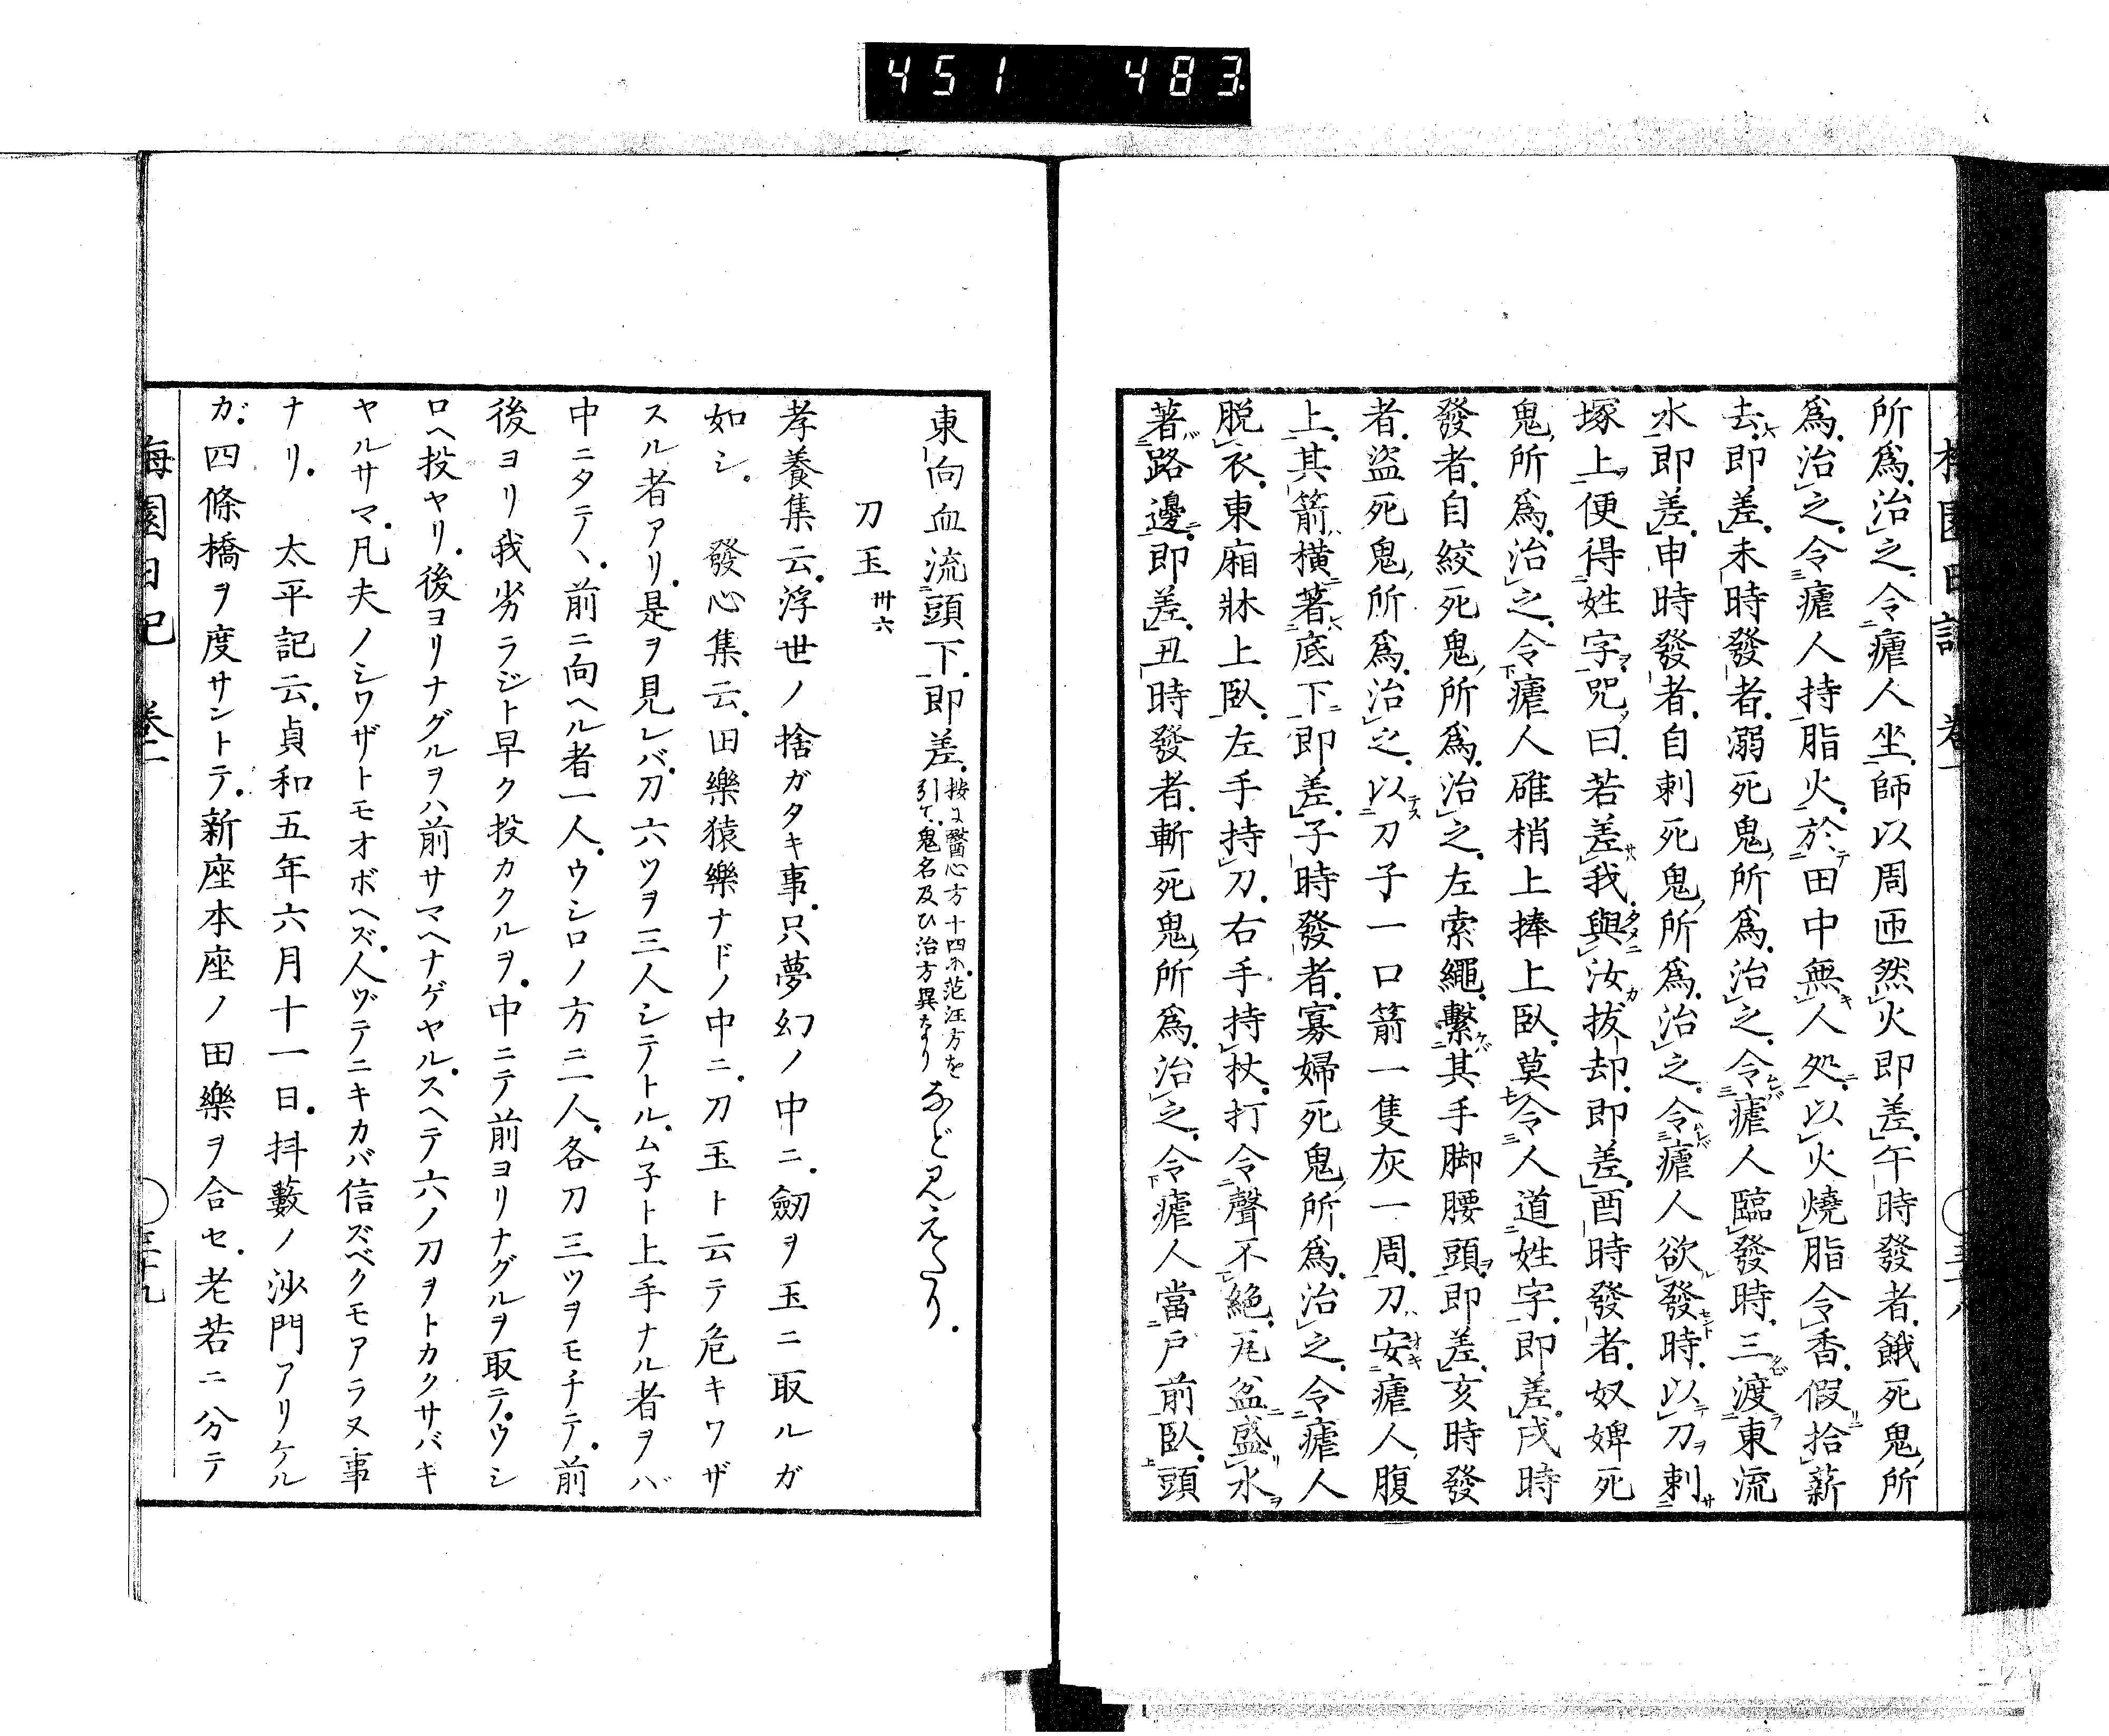 451 483
所爲。治之。令瘧人坐。師以周匝然火即差。午時發者。餓死鬼所
爲。治之。令瘧人持脂火。於田中無人処。以火燒脂令香。假拾薪
去。即差。未時發者。溺死鬼所爲。治之。令瘧人臨發時。三渡東流
水即差。申時發者。自刺死鬼所爲。治之。令瘧人欲發時。以刀刺
塚上。便得姓字。咒曰。若差我。與汝拔却。即差。酉時發者。奴婢死
鬼所爲。治之。令瘧人碓梢上捧上臥。莫令人道姓字。即差。戌時
發者。自絞死鬼所爲。治之。左索繩。繫其手脚腰頭。即差。亥時發
者。盜死鬼所爲。治之。以刀子一口箭一隻灰一周。刀安瘧人腹
上。其箭橫著底下。即差。子時發者。寡婦死鬼所爲。治之。令瘧人
脱衣。東廂牀上臥。左手持刀。右手持杖。打令聲不絶。瓦盆盛水
著路邊。即差。丑時發者。斬死鬼所爲。治之。令瘧人當戸前臥。頭
東向血流頭下。即差。
按に醫心方十四ニ。范汪方を
引て。鬼名及ひ治方異なり
などみえたり。
刀玉 卅六
孝養集云。浮世ノ捨ガタキ事。只夢幻ノ中ニ。劒ヲ玉ニ取ルガ
如シ。 發心集云。田樂猿樂ナドノ中ニ。刀玉ト云テ危キワザ
スル者アリ。是ヲ見レバ。刀六ツヲ三人シテトル。ム子ト上手ナル者ヲバ
中ニタテヽ。前ニ向ヘル者一人。ウシロノ方ニ二人。各刀三ツヲモチテ。前
後ヨリ我劣ラジト早ク投カクルヲ。中ニテ前ヨリナグルヲ取テ。ウシ
ロヘ投ヤリ。後ヨリナグルヲハ前サマヘナゲヤル。スヘテ六ノ刀ヲトカクサバキ
ヤルサマ。凡夫ノシワザトモオボヘズ。人ヅテニキカバ信ズベクモアラヌ事
ナリ。 太平記云。貞和五年六月十一日。抖藪ノ沙門アリケル
ガ。四條橋ヲ度サントテ。新座本座ノ田樂ヲ合セ。老若ニ分テ
梅園日記 卷一 三十九